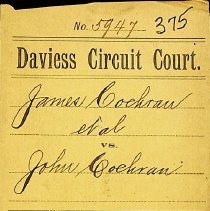 No. 5947 375
Daviess Circuit Court.
James Cochran
et al
vs.
John Cochran